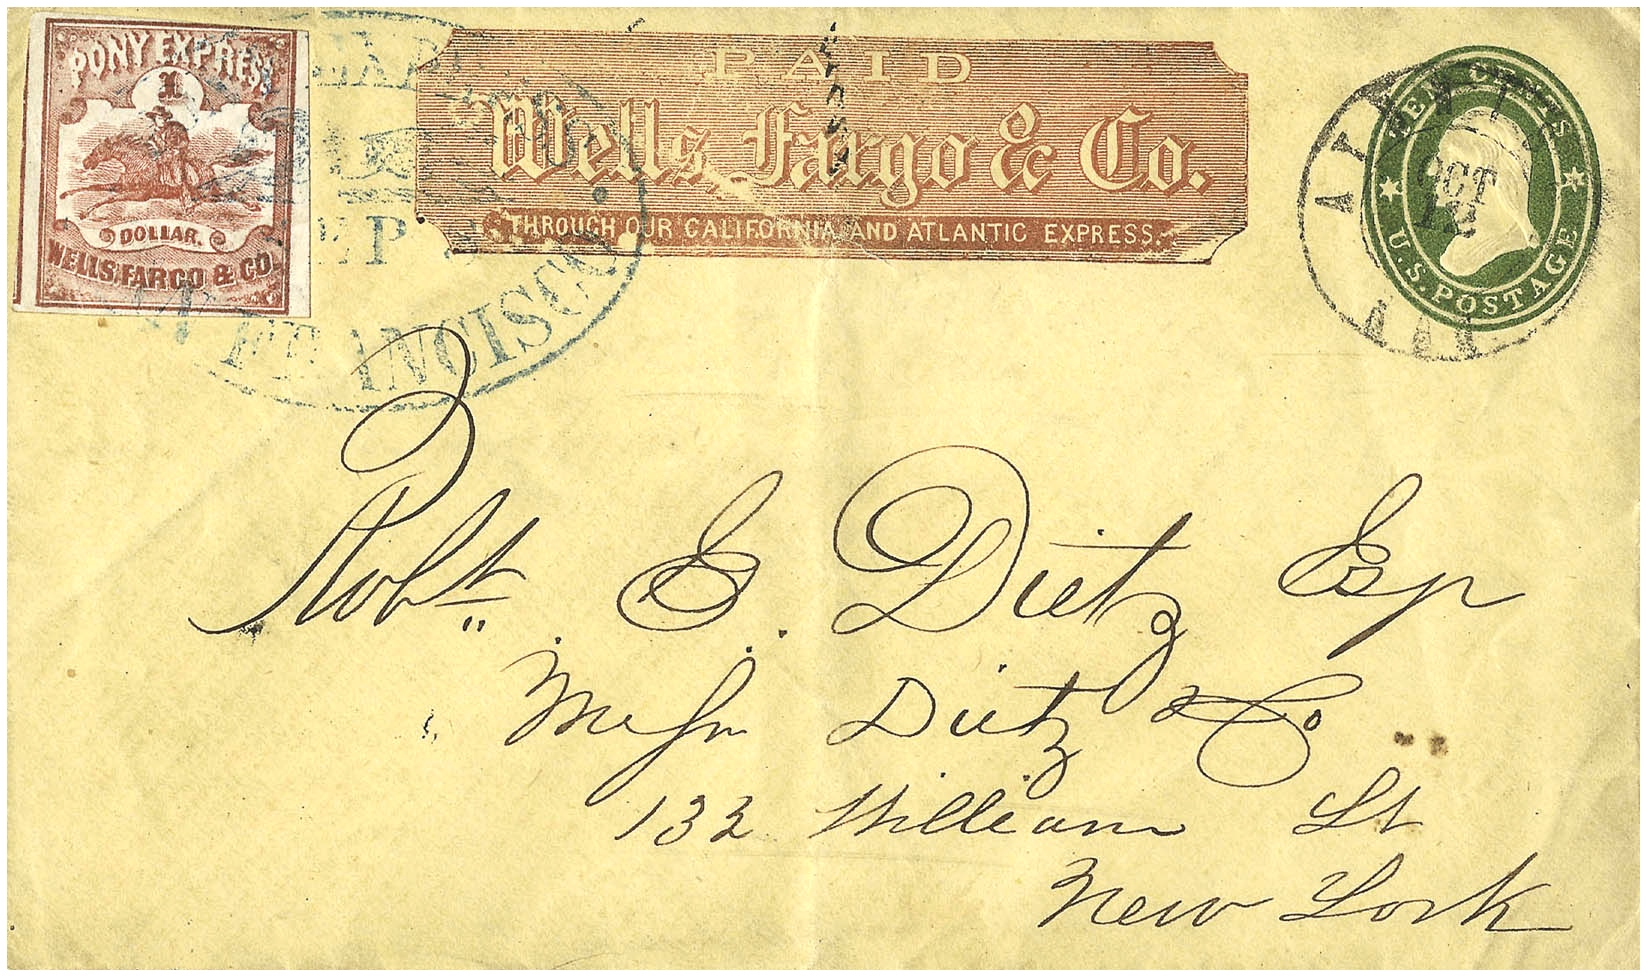 PONY EXPRESS
1
DOLLAR.
WELLS, FARGO & CO.
PAID
Wells, Fargo & Co.
THROUGH OUR CALIFORNIA AND ATLANTIC EXPRESS.
TEN CENTS
U.S. POSTAGE
OCT
12
FRANCISCO
Robt. E. Dietz Esq
Messrs Dietz & Co
132 William St
New York